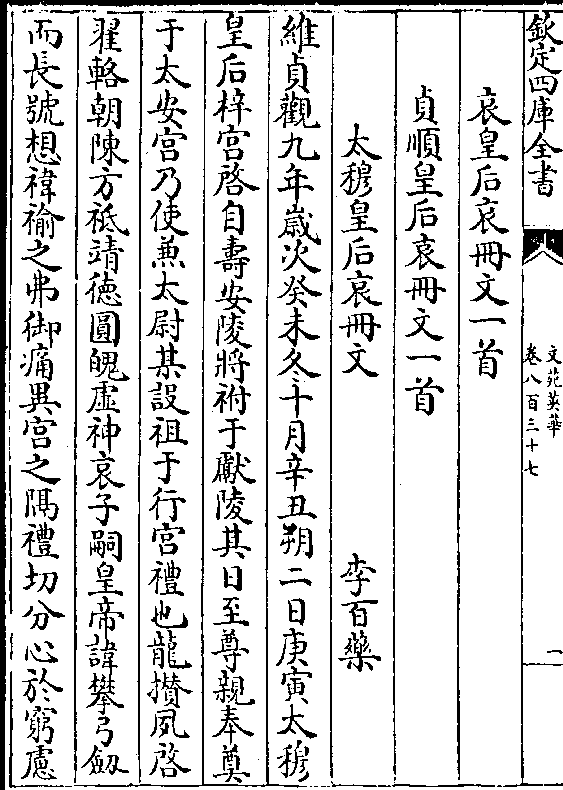 欽定四庫全書
文苑英華
卷八百三十七
一
哀皇后哀冊文一首
貞順皇后哀冊文一首
太穆皇后哀冊文 李百藥
維貞觀九年歲次癸未冬十月辛丑朔二日庚寅太穆
皇后梓宮啓自壽安陵將祔于獻陵其日至尊親奉奠
于太安宮乃使兼太尉某設祖于行宮禮也龍攅夙啓
翟輅朝陳方祗靖德圓魄虛神哀子嗣皇帝諱攀弓劔
而長號想褘褕之弗御痛異宮之隅禮切分心於窮慮